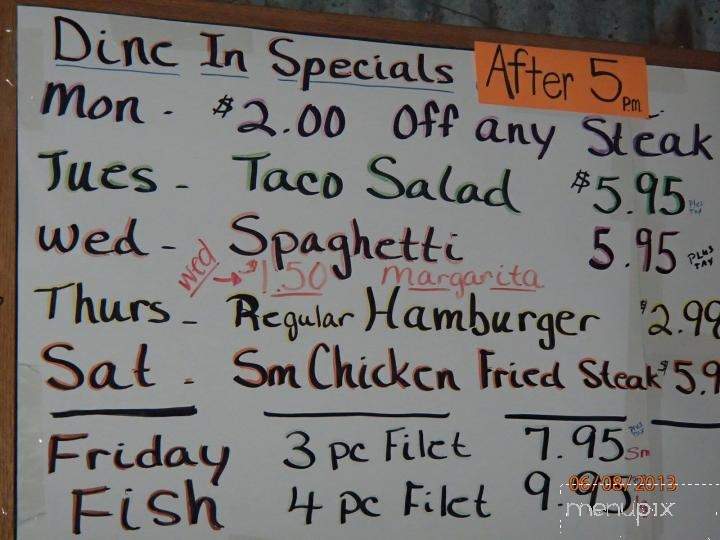 Dine In Specials After 5 pm
Mon - $2.00 Off any Steak
Tues - Taco Salad $5.95 Plus Tax
Wed - Spaghetti 5.95 PLUS TAX
Wed → $1.50 margarita
Thurs - Regular Hamburger $2.99
Sat - Sm Chicken Fried Steak $5.9
Friday 3 pc Filet 7.95 plus tax Sm
Fish 4 pc Filet 9.95
06/08/2013
menupix